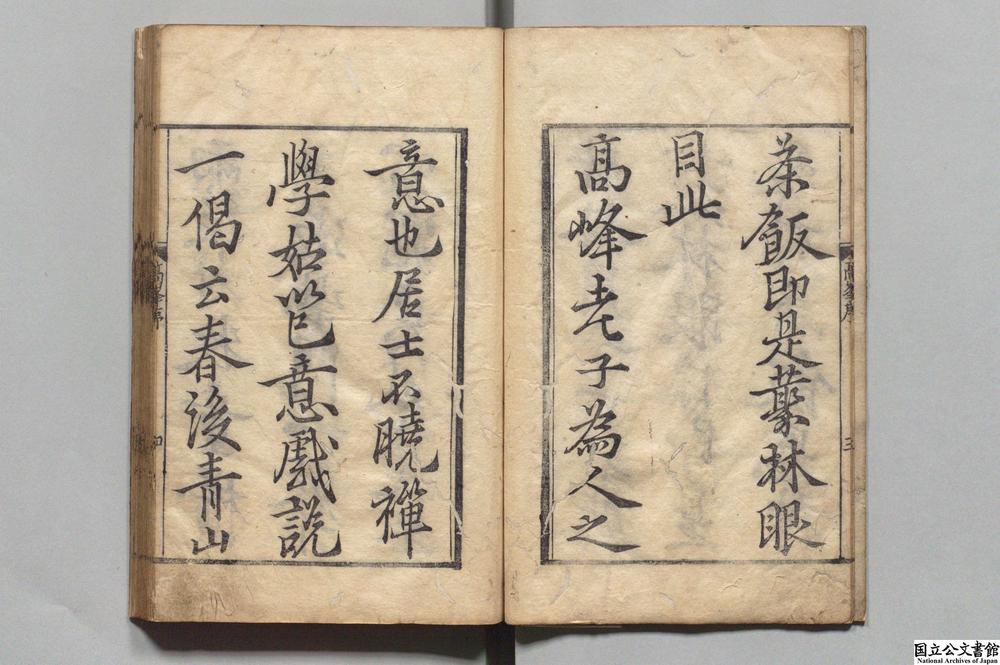 茶飯即是叢林眼
目此
高峰老子為人之
意也居士不曉禪
學姑筆意戲說
一偈云春後青山
高峰序
三
高峰序
四
国立公文書館
National Archives of Japan